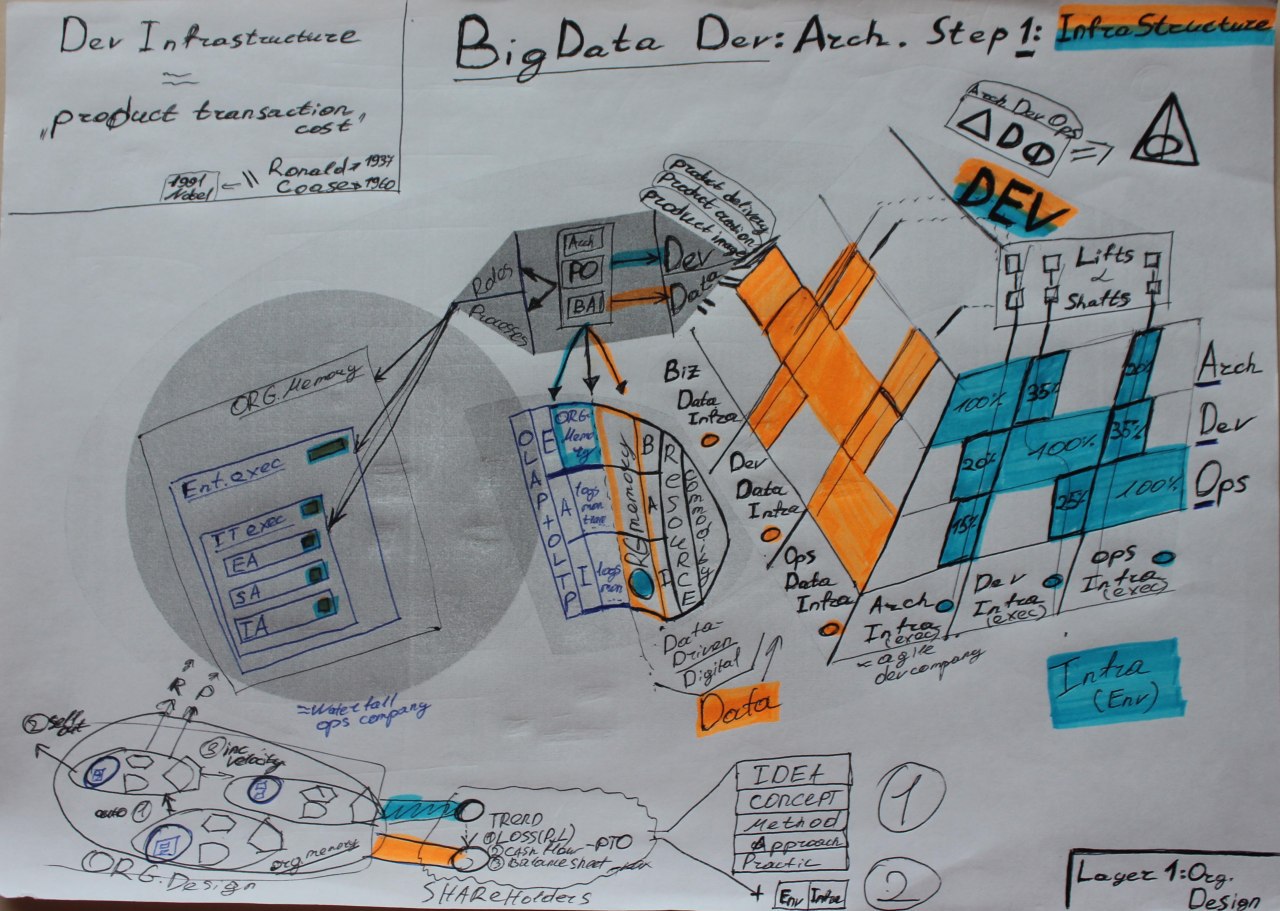 Dev Infrastructure
≈
"product transaction
cost"
1991
Nobel
Ronald 1937
Coase 1960
Big Data Dev: Arch. Step 1: InfraStructure
Arch Dev Ops
Δ D Φ =>
DEV
product delivery
product creation
product image
Roles
Processes
Arch
PO
BA
Dev
Data
Lifts
&
Shafts
Arch
Dev
Ops
100% 35% 20%
20% 100% 35%
15% 25% 100%
Biz
Data
Infra
Dev
Data
Infra
Ops
Data
Infra
Arch
Infra
(exec)
Dev
Infra
(exec)
Ops
Infra
(exec)
≈ agile
dev company
Infra
(Env)
ORG. Memory
Ent. exec
IT exec
EA
SA
IA
≈ Waterfall
ops company
OLAP + OLTP
E
A
I
ORG.
Memo
ry
logs
mon
trac
logs
mon
ORG memory
B
A
I
RESOURCE
commodity
Data-
Driven
Digital
Data
R P
② self
out
③ inc
velocity
auto ①
org memory
ORG. Design
TREND
① LOSS (P,L)
② Cash flow - PTO
③ Balance sheet
SHAReHolders
IDEA
CONCEPT
Method
Approach
Practic
+ Env Infra
1
2
Layer 1: Org.
Design